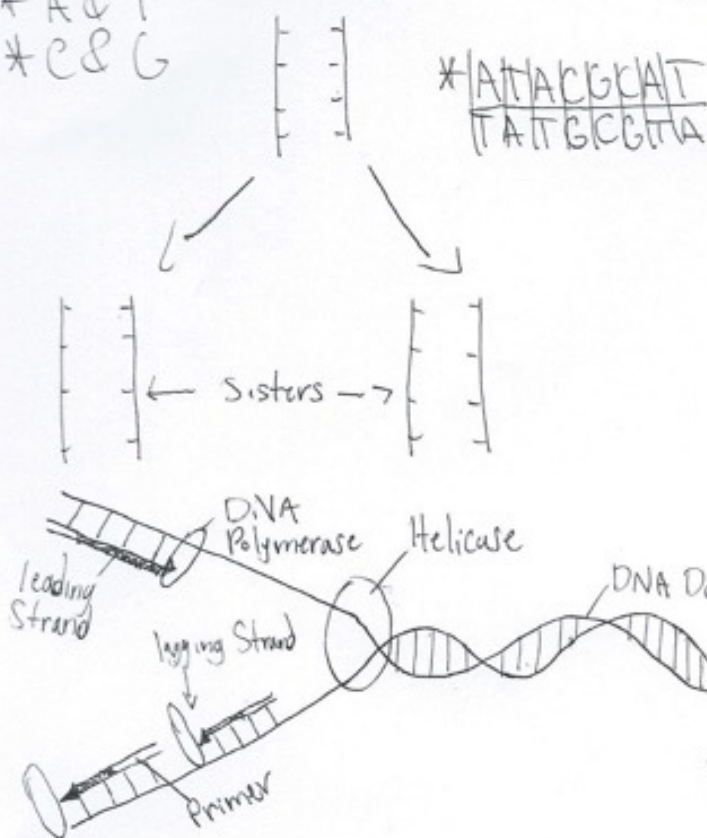 * A & T
* C & G
* A T A C G C A T
T A T G C G T A
Sisters
DNA
Polymerase
Helicase
leading
Strand
lagging Strand
DNA
Primer